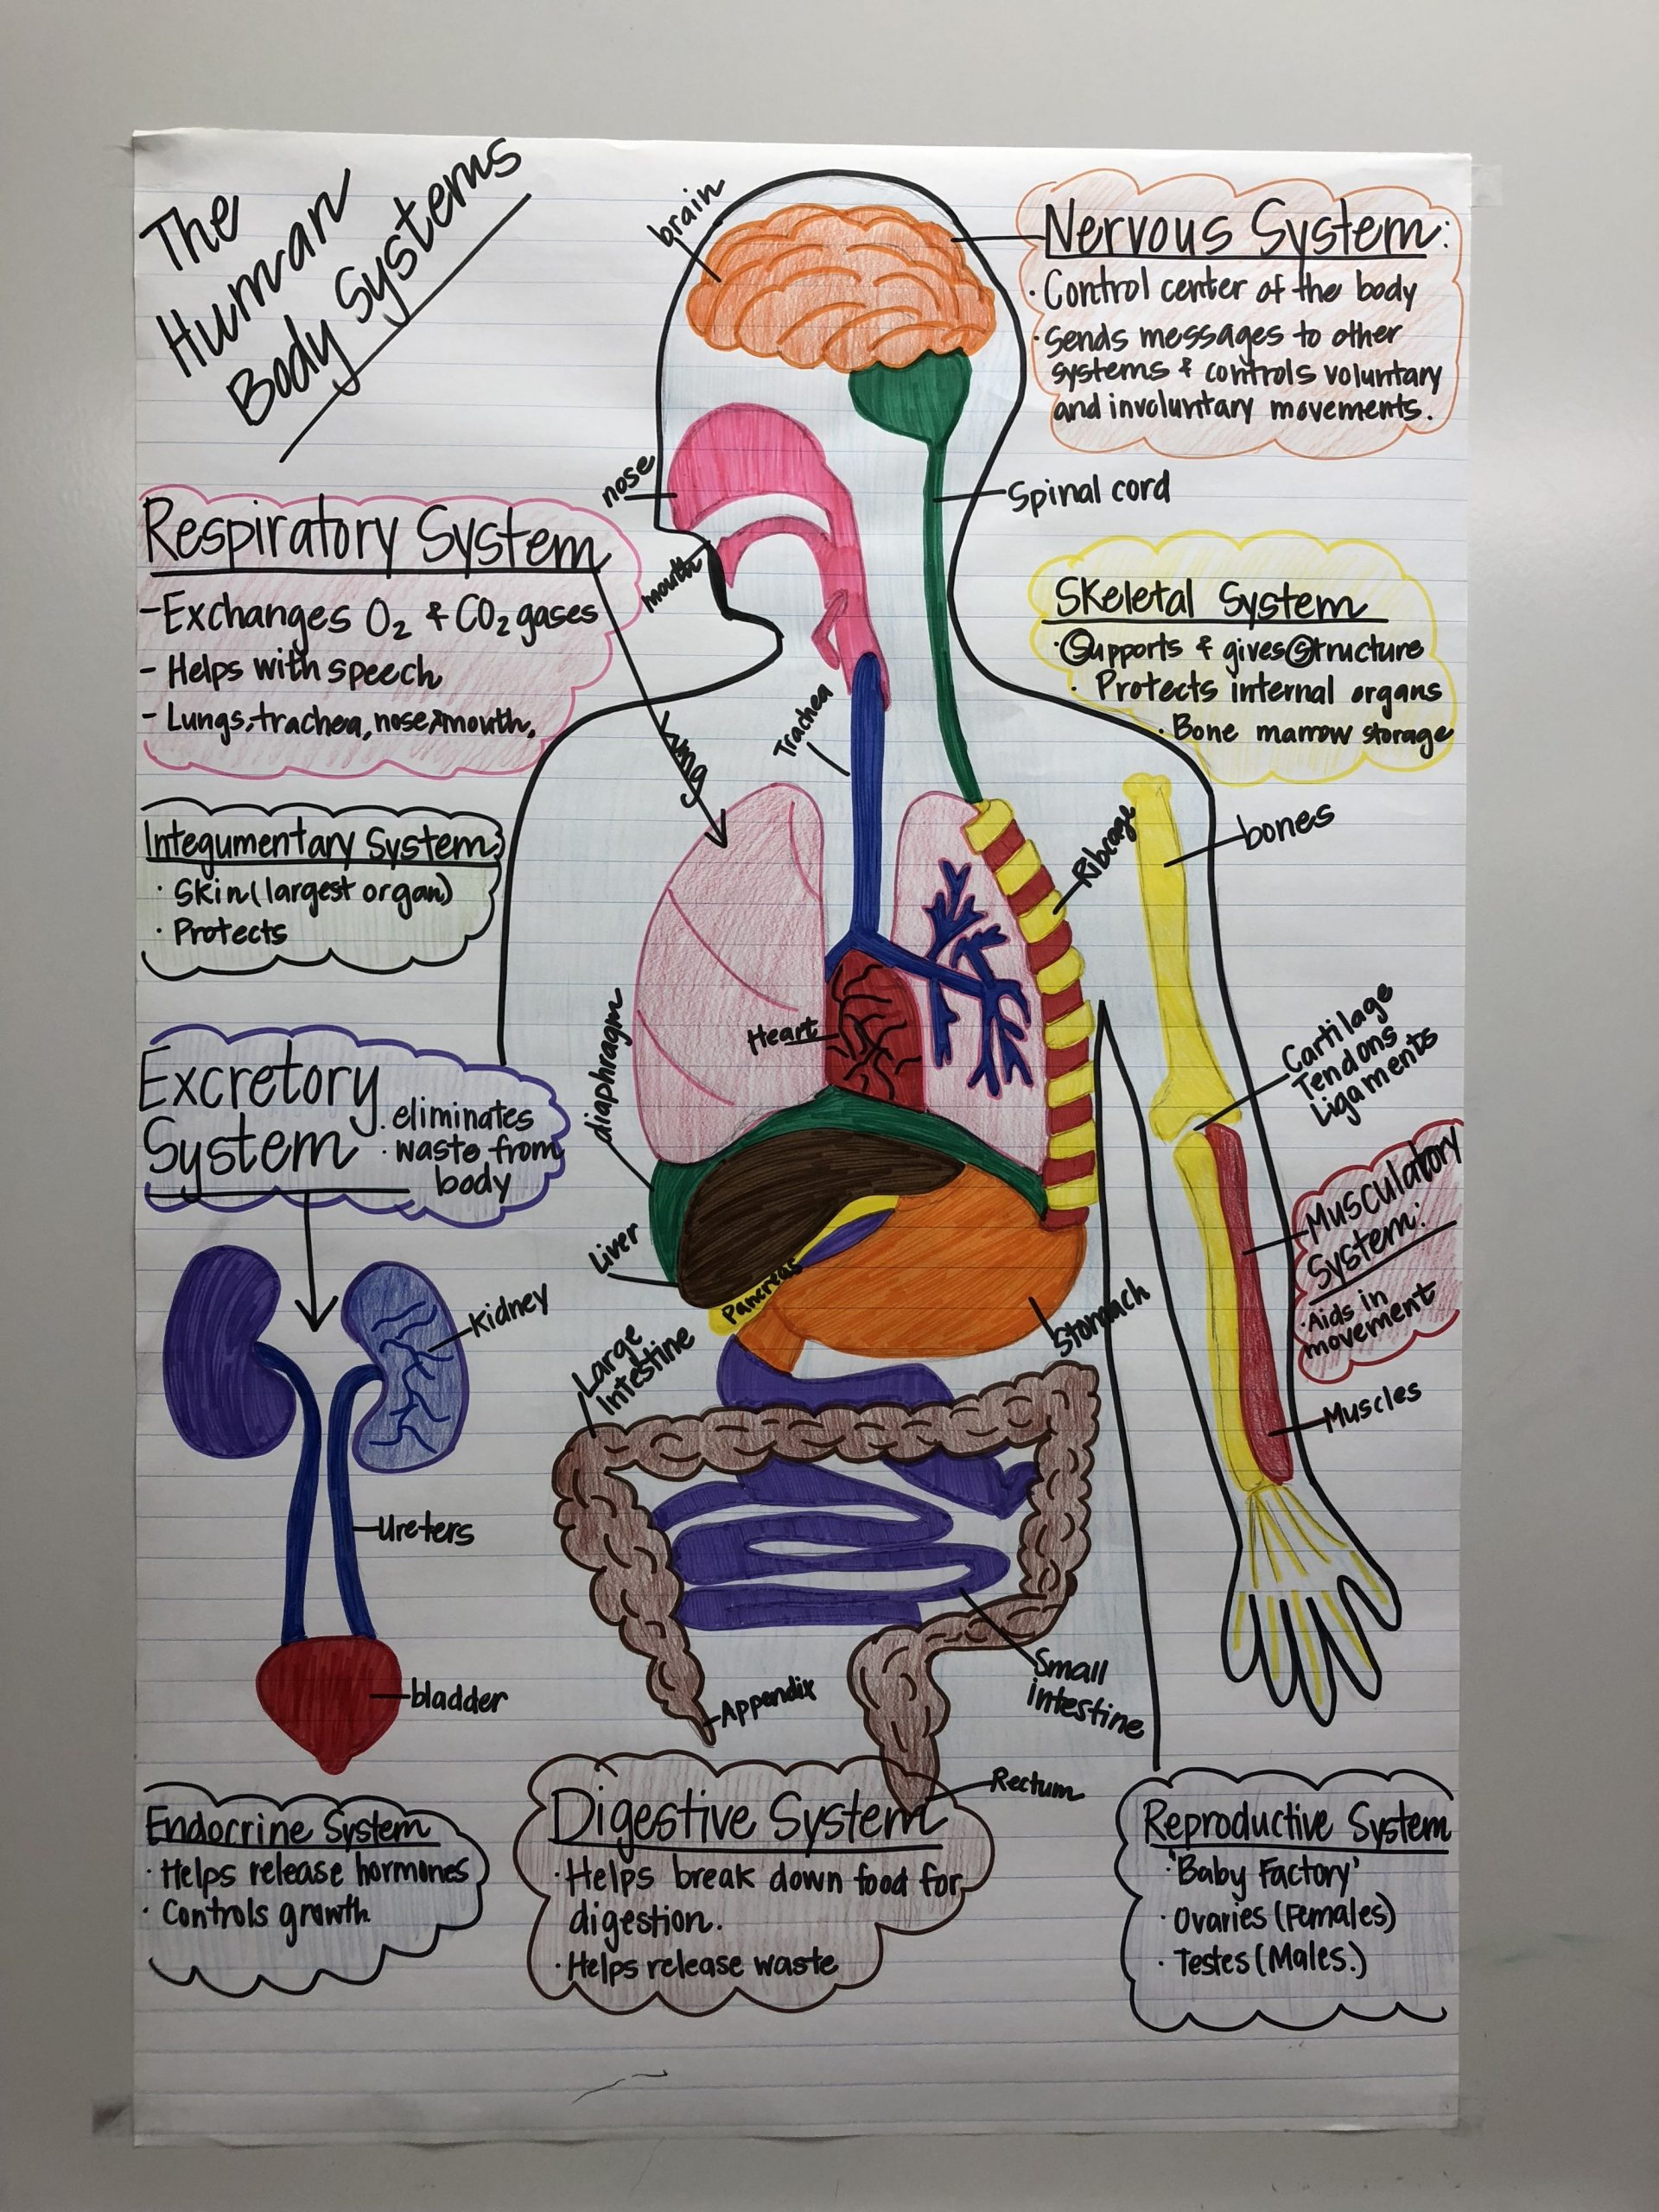 The
Human
Body Systems
brain
Nervous System:
· Control center of the body
· Sends messages to other
systems & controls voluntary
and involuntary movements.
nose
Spinal cord
mouth
Respiratory System
- Exchanges O₂ & CO₂ gases
- Helps with speech
- Lungs, trachea, nose, & mouth.
Skeletal System
· Supports & gives Structure
· Protects internal organs
· Bone marrow storage
Trachea
Lung
Integumentary System:
· Skin (largest organ)
· Protects
Ribcage
bones
Heart
diaphragm
Cartilage
Tendons
Ligaments
Excretory
System
· eliminates
· waste from
body
Musculatory
System:
· Aids in
movement
Liver
Pancreas
Stomach
Kidney
Large
Intestine
Muscles
Ureters
Small
intestine
bladder
Appendix
Rectum
Endocrine System
· Helps release hormones
· Controls growth
Digestive System
· Helps break down food for
digestion.
· Helps release waste
Reproductive System
· 'Baby Factory'
· Ovaries (Females)
· Testes (Males.)